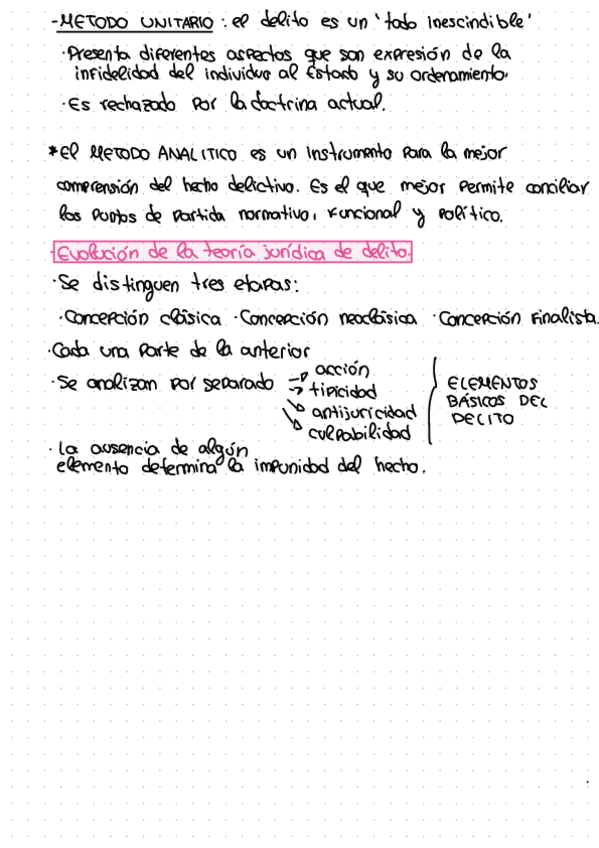 -METODO UNITARIO: el delito es un 'todo inescindible'
·Presenta diferentes aspectos que son expresión de la
infidelidad del individuo al Estado y su ordenamiento.
·Es rechazado por la doctrina actual.
*El METODO ANALITICO es un instrumento para la mejor
comprensión del hecho delictivo. Es el que mejor permite conciliar
los puntos de partida normativo, funcional y político.
·Evolución de la teoría jurídica de delito.
·Se distinguen tres etapas:
·Concepción clásica ·Concepción neoclásica ·Concepción Finalista.
·Cada una parte de la anterior
·Se analizan por separado → acción
→ tipicidad
↘ antijuricidad
↘ culpabilidad
ELEMENTOS
BÁSICOS DEL
DELITO
·La ausencia de algún
elemento determina la impunidad del hecho.